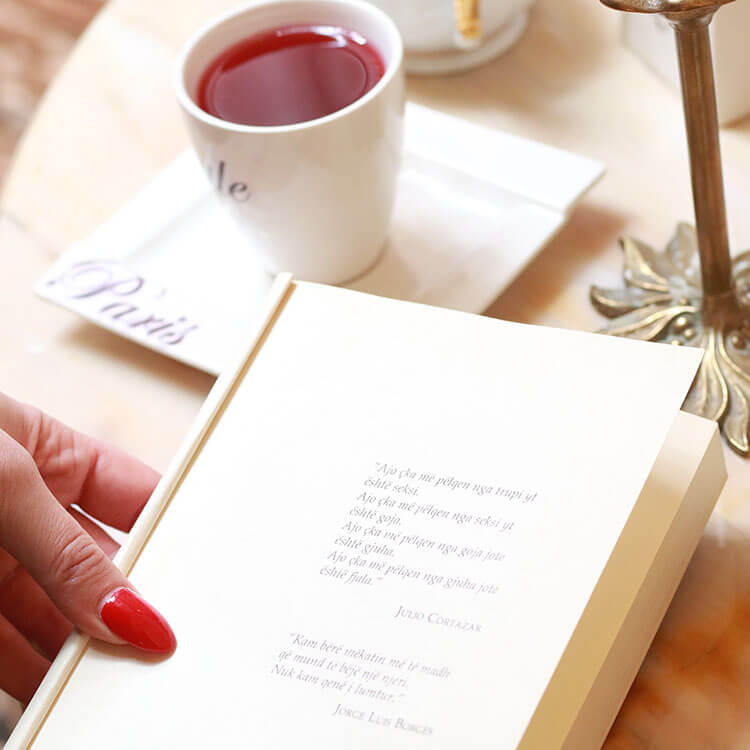 le
Paris
"Ajo çka më pëlqen nga trupi yt
është seksi.
Ajo çka më pëlqen nga seksi yt
është goja.
Ajo çka më pëlqen nga goja jote
është gjuha.
Ajo çka më pëlqen nga gjuha jote
është fjala."
JULIO CORTAZAR
"Kam bërë mëkatin më të madh
që mund të bëjë një njeri.
Nuk kam qenë i lumtur."
JORGE LUIS BORGES